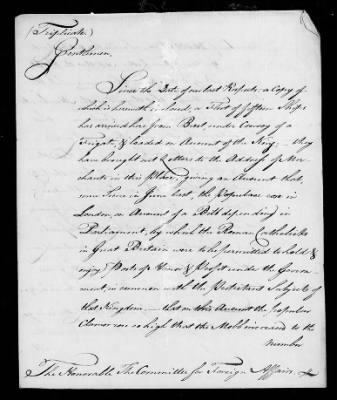 (Triplicate)
Gentlemen,
Since the Date of our last Respects, a Copy of
which is herewith inclosed, a Fleet of fifteen Ships
has arrived here from Brest, under Convoy of a
Frigat, & loaded on Account of the King, — they
have brought us Letters to the Address of Mer-
chants in this Place, giving an Account that,
some time in June last, the Populace rose in
London, on Account of a Bill depending in
Parliament, by which the Roman Catholicks
in Great Britain were to be permitted to hold &
enjoy Posts of Honor & Profit under the Govern-
ment, in common with the Protestant Subjects of
that Kingdom, — that on this Account the popular
Clamor rose so high that the Mob increased to the
number
The Honorable The Committee for Foreign Affairs